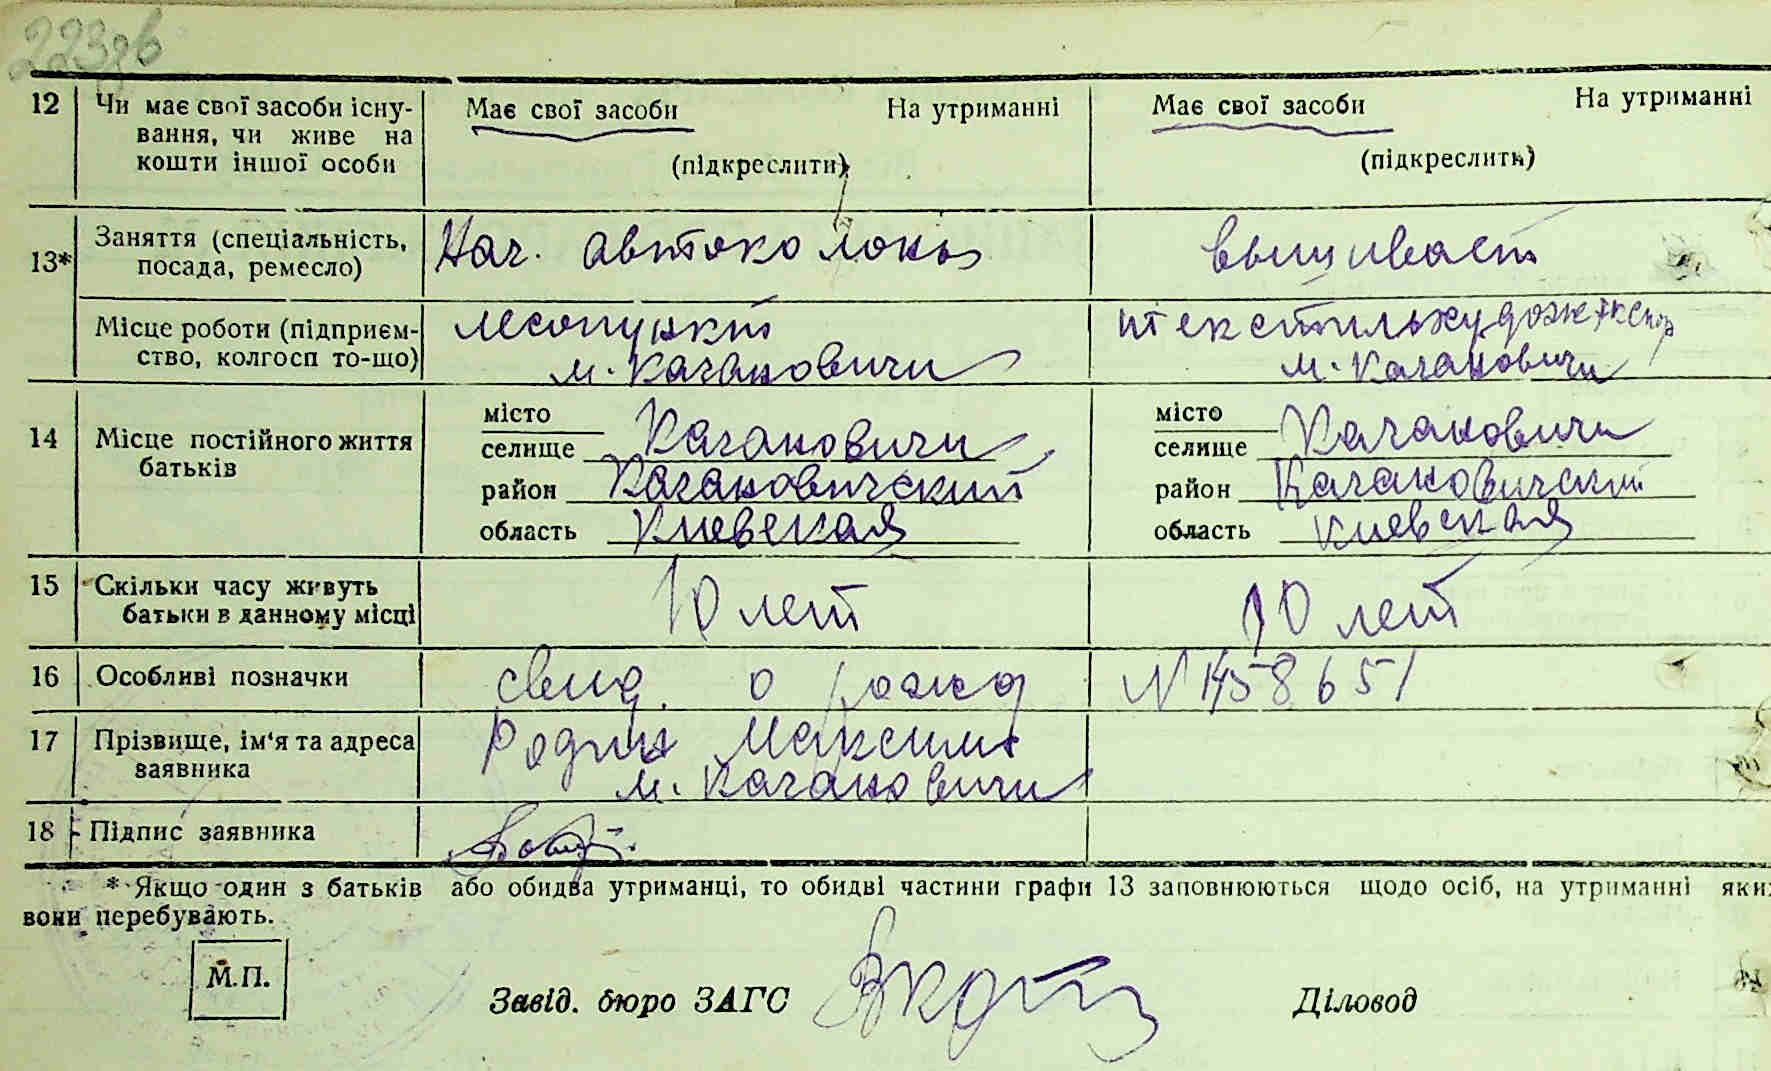 223зв
12 Чи має свої засоби існу- Має свої засоби На утриманні Має свої засоби На утриманні
вання, чи живе на
кошти іншої особи (підкреслити) (підкреслить)
13* Заняття (спеціальність, Нач. автоколоны вышивает
посада, ремесло)
Місце роботи (підприєм- текстильхудож
ство, колгосп то-що) м. Каганович м. Кагановичи
14 Місце постійного життя місто місто
батьків селище Кагановичи селище Кагановичи
район Кагановичский район Кагановичский
область Киевская область Киевская
15 Скільки часу живуть 10 лет 10 лет
батьки в данному місці
16 Особливі позначки свид. о рожд N 1458651
17 Прізвище, ім'я та адреса Родин Максим
заявника м. Кагановичи
18 Підпис заявника
* Якщо один з батьків або обидва утриманці, то обидві частини графи 13 заповнюються щодо осіб, на утриманні яких
вони перебувають.
М.П.
Завід. бюро ЗАГС Діловод